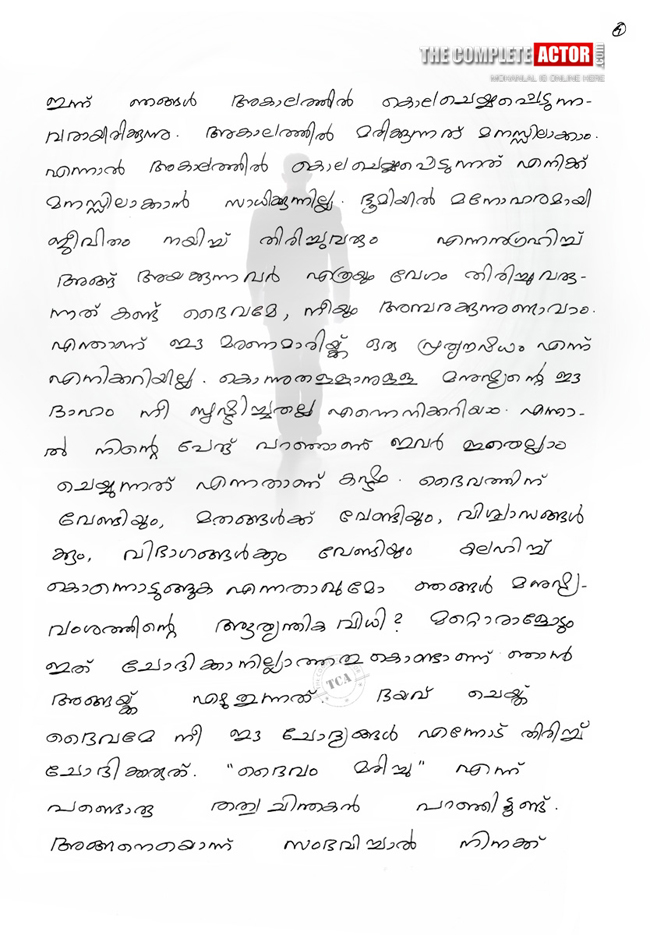 5
THE COMPLETE ACTOR
MOHANLAL IS ONLINE HERE
ഇന്ന് ഞങ്ങൾ അകാലത്തിൽ കൊലചെയ്യപ്പെടുന്ന-
വരായിരിക്കുന്നു. അകാലത്തിൽ മരിക്കുന്നത് മനസ്സിലാക്കാം.
എന്നാൽ അകാലത്തിൽ കൊലചെയ്യപ്പെടുന്നത് എനിക്ക്
മനസ്സിലാക്കാൻ സാധിക്കുന്നില്ല. ഭൂമിയിൽ മനോഹരമായി
ജീവിതം നയിച്ച് തിരിച്ചുവരും എന്നനുഗ്രഹിച്ച്
അങ്ങ് അയക്കുന്നവർ എത്രയും വേഗം തിരിച്ചുവരു-
ന്നത് കണ്ട് ദൈവമേ, നീയും അമ്പരക്കുന്നുണ്ടാവാം.
എന്താണ് ഈ മരണമാരിയ്ക്ക് ഒരു പ്രത്യൗഷധം എന്ന്
എനിക്കറിയില്ല. കൊന്നുതള്ളാനുള്ള മനുഷ്യന്റെ ഈ
ദാഹം നീ സൃഷ്ടിച്ചതല്ല എന്നെനിക്കറിയാം. എന്നാ-
ൽ നിന്റെ പേര് പറഞ്ഞാണ് ഇവർ ഇതെല്ലാം
ചെയ്യുന്നത് എന്നതാണ് കഷ്ടം. ദൈവത്തിന്
വേണ്ടിയും, മതങ്ങൾക്ക് വേണ്ടിയും, വിശ്വാസങ്ങൾ
ക്കും, വിഭാഗങ്ങൾക്കും വേണ്ടിയും കലഹിച്ച്
കൊന്നൊടുങ്ങുക എന്നതാകുമോ ഞങ്ങൾ മനുഷ്യ-
വംശത്തിന്റെ ആത്യന്തിക വിധി? മറ്റൊരാളോടും
ഇത് ചോദിക്കാനില്ലാത്തതു കൊണ്ടാണ് ഞാൻ
അങ്ങയ്ക്ക് എഴുതുന്നത്. ദയവ് ചെയ്ത്
ദൈവമേ നീ ഈ ചോദ്യങ്ങൾ എന്നോട് തിരിച്ച്
ചോദിക്കരുത്. "ദൈവം മരിച്ചു" എന്ന്
പണ്ടൊരു തത്വചിന്തകൻ പറഞ്ഞിട്ടുണ്ട്.
അങ്ങനെയൊന്ന് സംഭവിച്ചാൽ നിനക്ക്
TCA